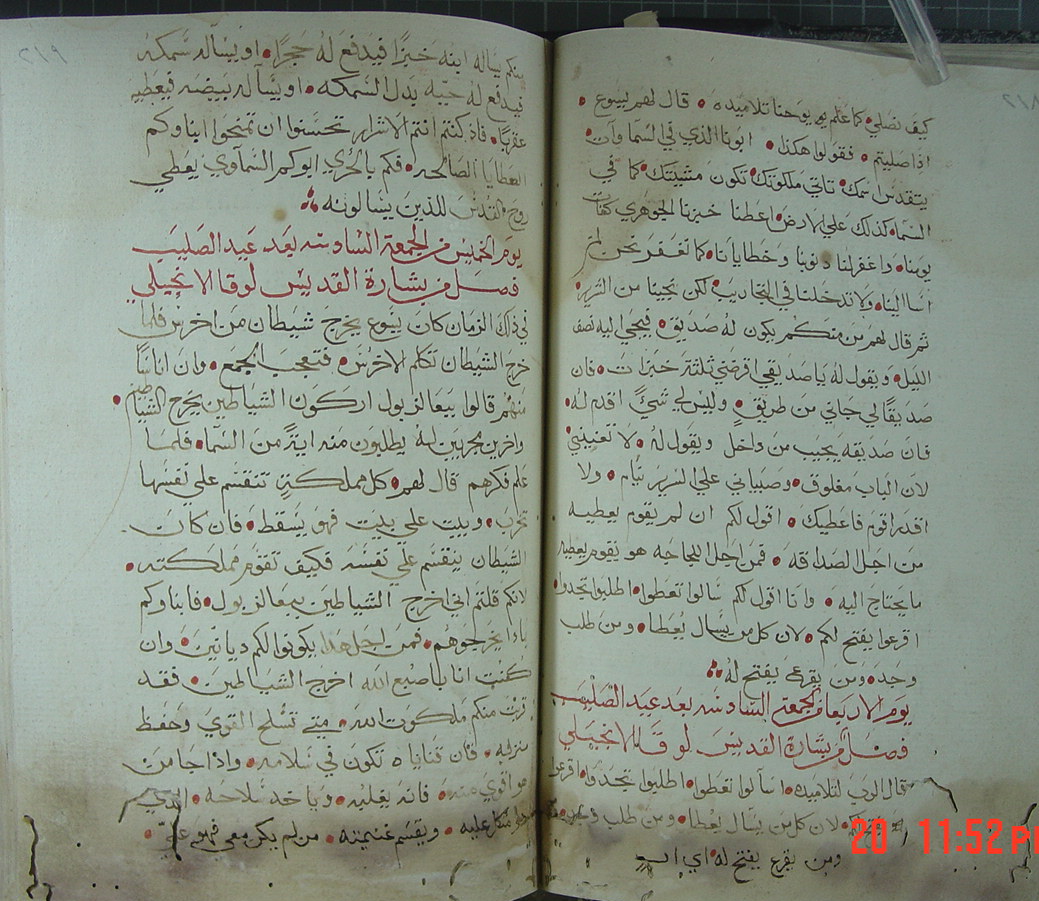 ٢١٨
كيف نصلي كما علم يوحنا تلاميذه • قال لهم يسوع
اذا صليتم • فقولوا هكذا • ابونا الذي في السما وات
يتقدس اسمك • تاتي ملكوتك • تكون مشيتك • كما في
السما • كذلك علي الارض • اعطنا خبزنا الجوهري كفات
يومنا • واغفر لنا ذنوبنا وخطايانا • كما نغفر نحن لمن
اسا الينا • ولا تدخلنا في التجاريب • لكن نجينا من الشرير •
ثم قال لهم من منكم يكون له صديق • فيجي اليه نصف
الليل • ويقول له يا صديقي اقرضني ثلثة خبزات • فان
صديقا لي جاني من طريق • وليس لي شي اقدم له •
فان صديقه يجيب من داخل ويقول له • لا تعنيني
لان الباب مغلوق • وصبياني علي السرير نيام • ولا
اقدر اقوم فاعطيك • اقول لكم ان لم يقوم يعطيه
من اجل الصداقه • فمن اجل اللجاجه هو يقوم يعطيه
ما يحتاج اليه • وانا اقول لكم سالوا تعطوا • اطلبوا تجدوا •
اقرعوا يفتح لكم • لان كل من يسال يعطا • ومن طلب
وجد • ومن يقرع يفتح له
يوم الاربعا من الجمعة السادسه بعد عيد الصليب
فصل من بشارة القديس لوقا الانجيلي
قال الرب لتلاميذه • اسالوا تعطوا • اطلبوا تجدوا • اقرعوا
لان كل من يسال يعطا • ومن طلب وجد •
ومن يقرع يفتح له • اي اب
٢١٩
منكم يساله ابنه خبزا فيدفع له حجرا • او يساله سمكه
فيدفع له حيه بدل السمكه • او يساله بيضه فيعطيه
عقربا • فاذ كنتم انتم الاشرار تحسنوا ان تمنحوا ابناوكم
العطايا الصالحه • فكم بالحري ابوكم السماوي يعطي
روح القدس للذين يسالونه
يوم الخميس من الجمعة السادسه بعد عيد الصليب
فصل من بشارة القديس لوقا الانجيلي
في ذلك الزمان كان يسوع يخرج شيطان من اخرس فلما
خرج الشيطان تكلم الاخرس • فتعجب الجمع • وان اناسا
منهم قالوا ببعالزبول اركون الشياطين يخرج الشياطين •
واخرين مجربين له يطلبون منه اية من السما • فلما
علم فكرهم قال لهم • كل مملكة تنقسم علي نفسها
تخرب • وبيت علي بيت فهو يسقط • فان كان
الشيطان ينقسم علي نفسه فكيف تقوم مملكته •
لانكم قلتم اني اخرج الشياطين ببعالزبول • فابناوكم
باذا يخرجوهم • فمن اجل هذا يكونوا لكم ديانين • وان
كنت انا باصبع الله اخرج الشياطين • فقد
قربت منكم ملكوت الله • متي تسلح القوي وحفظ
منزله • فان قناياه تكون في سلامه • واذا جا من
هو اقوي منه • فانه يغلبه • وياخذ سلاحه • الذي
متكل عليه • ويقسم غنيمته • من لم يكن معي فهو علي •
20 11:52 pm